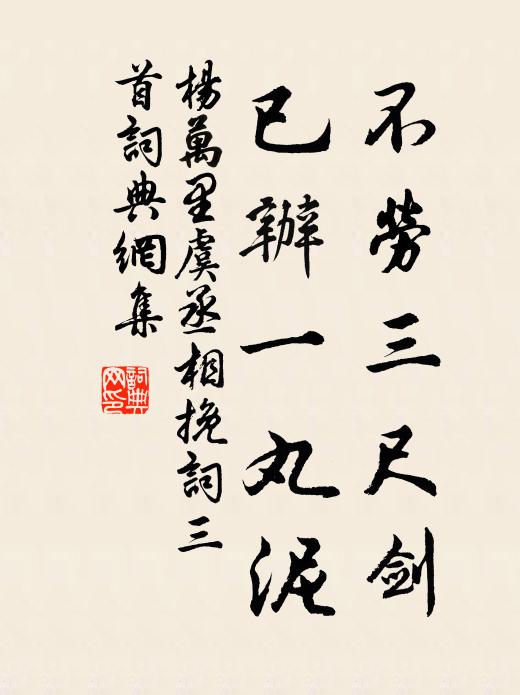 不勞三尺劍
已辦一丸泥
楊萬里虞丞相挽詞三
首詞典網集
詞典
网印